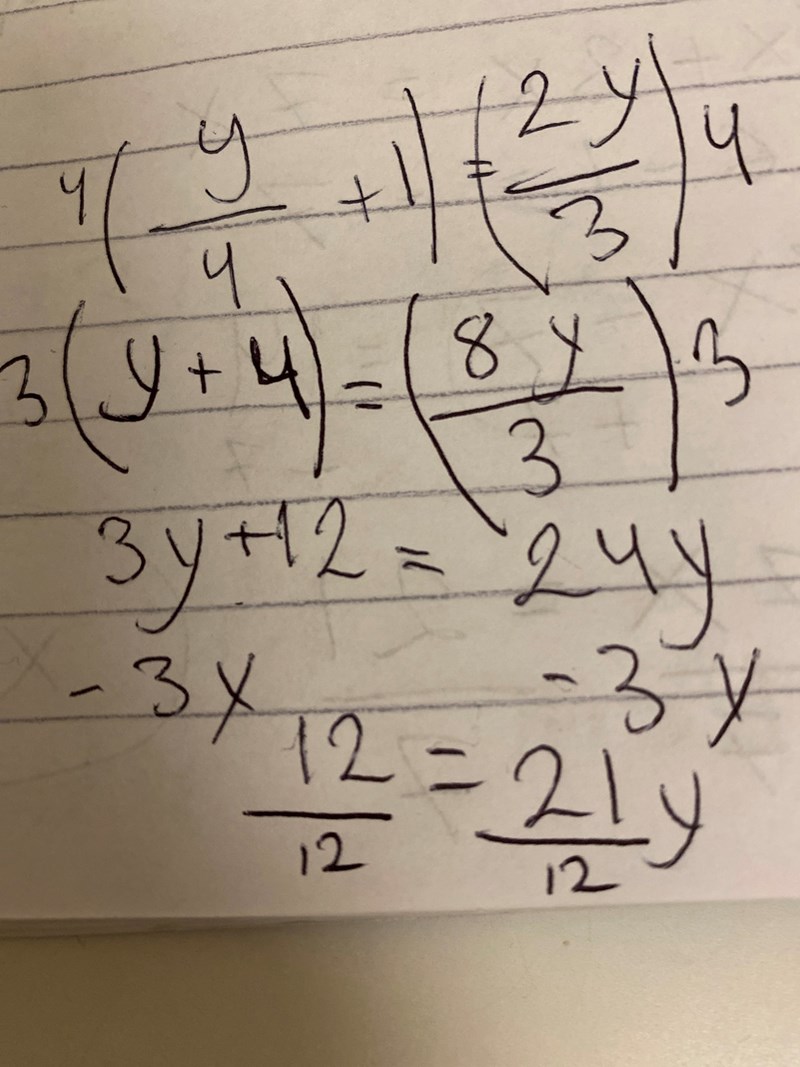 4(y/4 + 1) = (2y/3)4
3(y + 4) = (8y/3)3
3y + 12 = 24y
- 3y - 3y
12/12 = 21/12 y